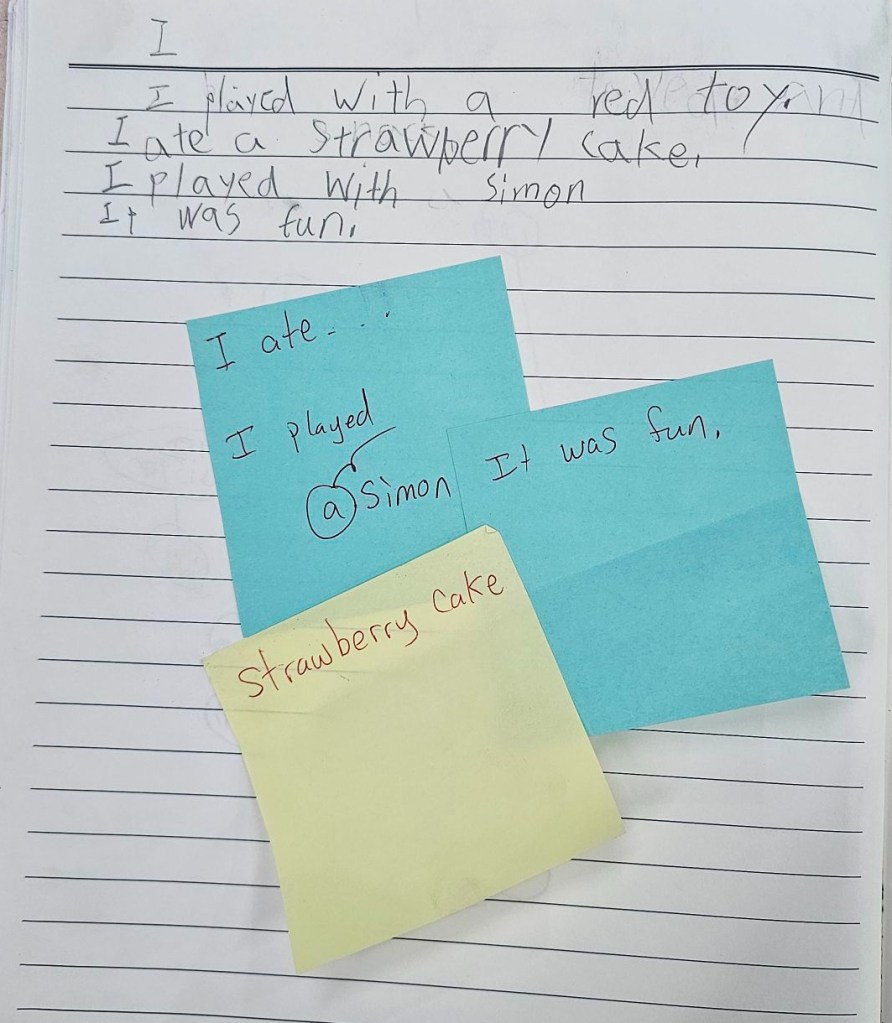 I
I played with a red toy.
I ate a strawberry cake.
I played with simon
It was fun.
I ate...
I played
a Simon
It was fun.
strawberry cake